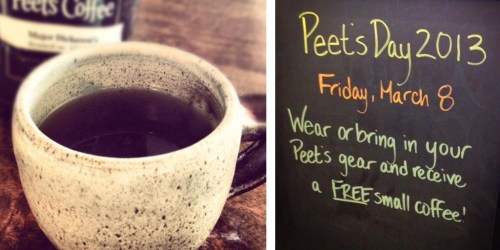 Peet's Coffee
Major Dickason's
Peet's Day 2013
Friday, March 8
Wear or bring in your
Peet's gear and receive
a FREE small coffee!